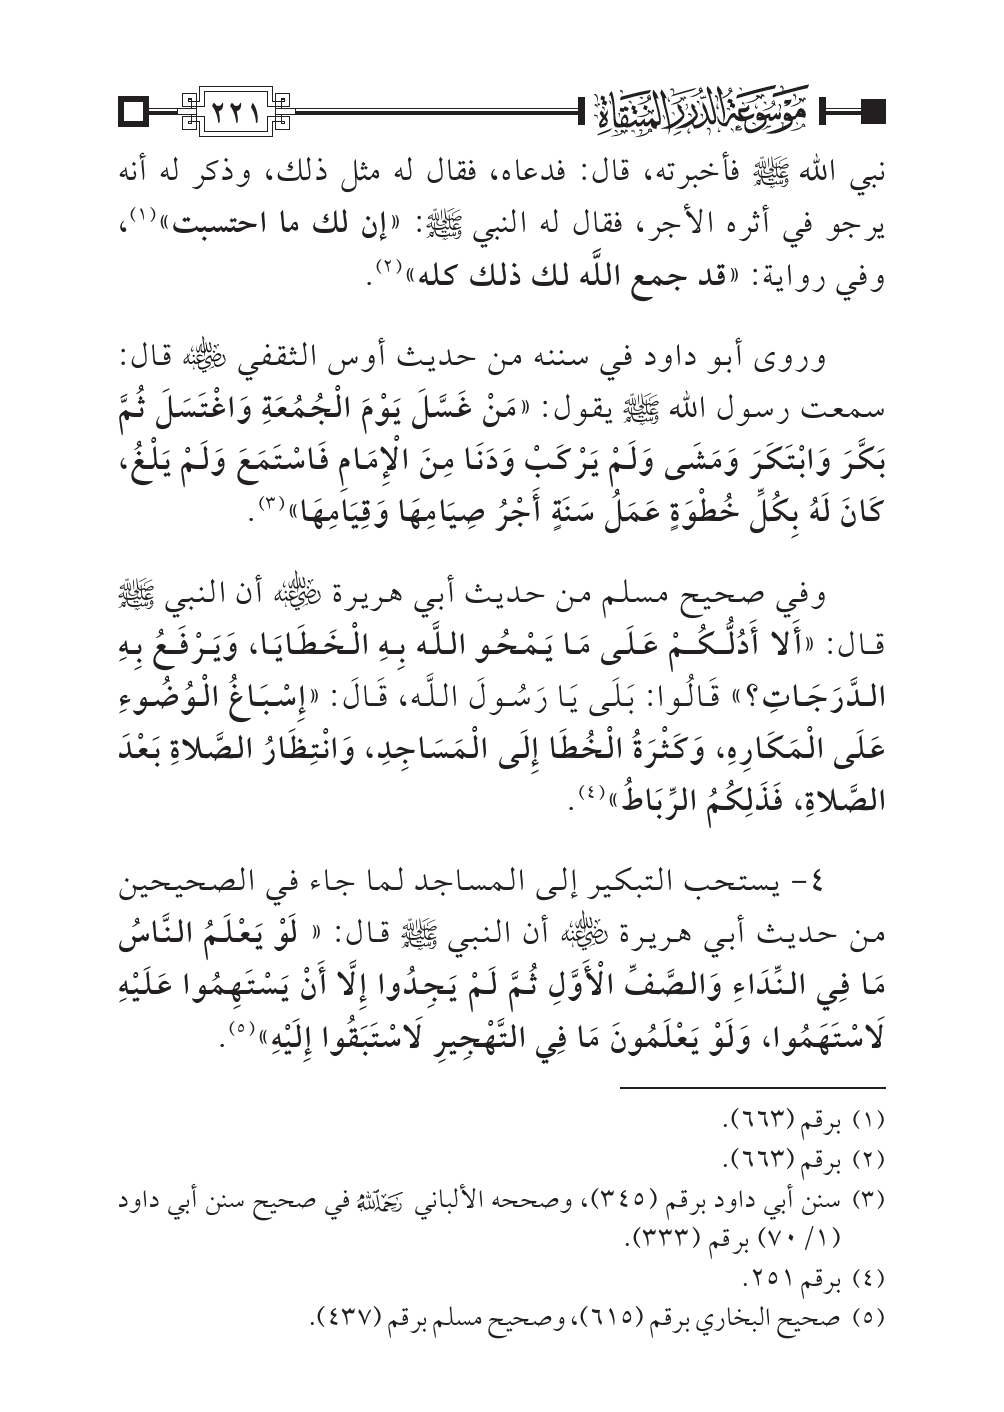 موسوعة الدرر المنتقاة
٢٢١
نبي الله ﷺ فأخبرته، قال: فدعاه، فقال له مثل ذلك، وذكر له أنه
يرجو في أثره الأجر، فقال له النبي ﷺ: «إن لك ما احتسبت»(١)،
وفي رواية: «قد جمع اللَّه لك ذلك كله»(٢).
وروى أبو داود في سننه من حديث أوس الثقفي رضي الله عنه قال:
سمعت رسول الله ﷺ يقول: «مَنْ غَسَّلَ يَوْمَ الْجُمُعَةِ وَاغْتَسَلَ ثُمَّ
بَكَّرَ وَابْتَكَرَ وَمَشَى وَلَمْ يَرْكَبْ وَدَنَا مِنَ الْإِمَامِ فَاسْتَمَعَ وَلَمْ يَلْغُ،
كَانَ لَهُ بِكُلِّ خُطْوَةٍ عَمَلُ سَنَةٍ أَجْرُ صِيَامِهَا وَقِيَامِهَا»(٣).
وفي صحيح مسلم من حديث أبي هريرة رضي الله عنه أن النبي ﷺ
قال: «أَلا أَدُلُّكُمْ عَلَى مَا يَمْحُو اللَّه بِهِ الْخَطَايَا، وَيَرْفَعُ بِهِ
الدَّرَجَاتِ؟» قَالُوا: بَلَى يَا رَسُولَ اللَّه، قَالَ: «إِسْبَاغُ الْوُضُوءِ
عَلَى الْمَكَارِهِ، وَكَثْرَةُ الْخُطَا إِلَى الْمَسَاجِدِ، وَانْتِظَارُ الصَّلاةِ بَعْدَ
الصَّلاةِ، فَذَلِكُمُ الرِّبَاطُ»(٤).
٤- يستحب التبكير إلى المساجد لما جاء في الصحيحين
من حديث أبي هريرة رضي الله عنه أن النبي ﷺ قال: « لَوْ يَعْلَمُ النَّاسُ
مَا فِي النِّدَاءِ وَالصَّفِّ الْأَوَّلِ ثُمَّ لَمْ يَجِدُوا إِلَّا أَنْ يَسْتَهِمُوا عَلَيْهِ
لَاسْتَهَمُوا، وَلَوْ يَعْلَمُونَ مَا فِي التَّهْجِيرِ لَاسْتَبَقُوا إِلَيْهِ»(٥).
(١) برقم (٦٦٣).
(٢) برقم (٦٦٣).
(٣) سنن أبي داود برقم (٣٤٥)، وصححه الألباني رحمه الله في صحيح سنن أبي داود
(١/ ٧٠) برقم (٣٣٣).
(٤) برقم ٢٥١.
(٥) صحيح البخاري برقم (٦١٥)، وصحيح مسلم برقم (٤٣٧).